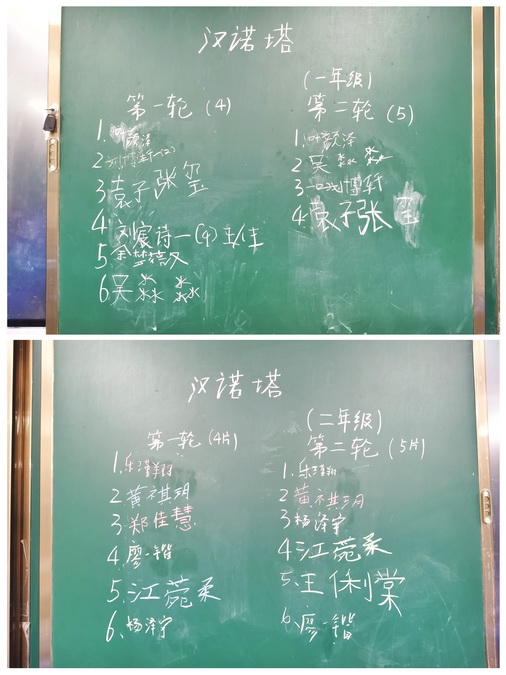 汉诺塔
(一年级)
第一轮(4)
1.叶颜泽
2刘博轩一(2)
3袁子张玺
4刘宸诗一(4)
5余梦
6吴淼淼
第二轮(5)
1.叶颜泽
2.吴淼淼
3刘博轩
4袁子张玺
汉诺塔
(二年级)
第一轮(4片)
1.乐瑾翔
2黄祺玥
3.郑佳慧
4.廖一锴
5.江菀柔
6.杨泽宇
第二轮(5片)
1.乐瑾翔
2黄祺玥
3杨泽宇
4江菀柔
5.王俐棠
6.廖一锴